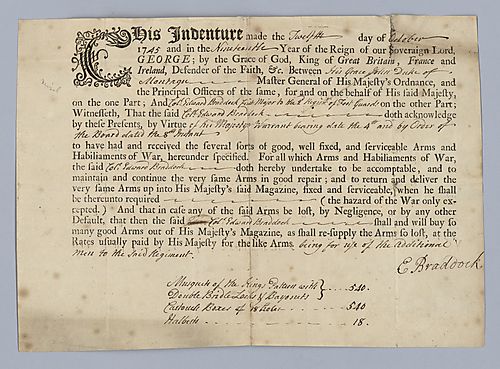 This Indenture made the Twelfth day of October
1745 and in the Nineteenth Year of the Reign of our Sovereign Lord,
GEORGE; by the Grace of God, King of Great Britain, France and
Ireland, Defender of the Faith, &c. Between His Grace John Duke of
Montagu Master General of His Majesty's Ordnance, and
the Principal Officers of the same, for and on the behalf of His said Majesty,
on the one Part; And Col. Edward Braddock first Major to the 2d Regimt. of Foot Guards on the other Part;
Witnesseth, That the said Col. Edward Braddock doth acknowledge
by these Presents, by Virtue of his Majesty's Warrant bearing date the 4th and by Order of
the Board dated the 8th Instant
to have had and received the several sorts of good, well fixed, and serviceable Arms and
Habiliaments of War, hereunder specified. For all which Arms and Habiliments of War,
the said Col. Edward Braddock doth hereby undertake to be accomptable, and to
maintain and continue the very same Arms in good repair; and to return and deliver the
very same Arms up into His Majesty's said Magazine, fixed and serviceable, when he shall
be thereunto required (the hazard of the War only ex-
cepted.) And that in case any of the said Arms be lost, by Negligence, or by any other
Default, that then the said Col. Edward Braddock shall and will buy so
many good Arms out of His Majesty's Magazine, as shall re-supply the Arms so lost, at the
Rates usually paid by His Majesty for the like Arms. being for use of the Additional
men to the said Regiment.
E. Braddock
Musquets of the Kings Pattern with
Double Bridle Locks & Bayonets } .... 540
Cartouch Boxes of 18 holes ... 540
Halberts ... 18.